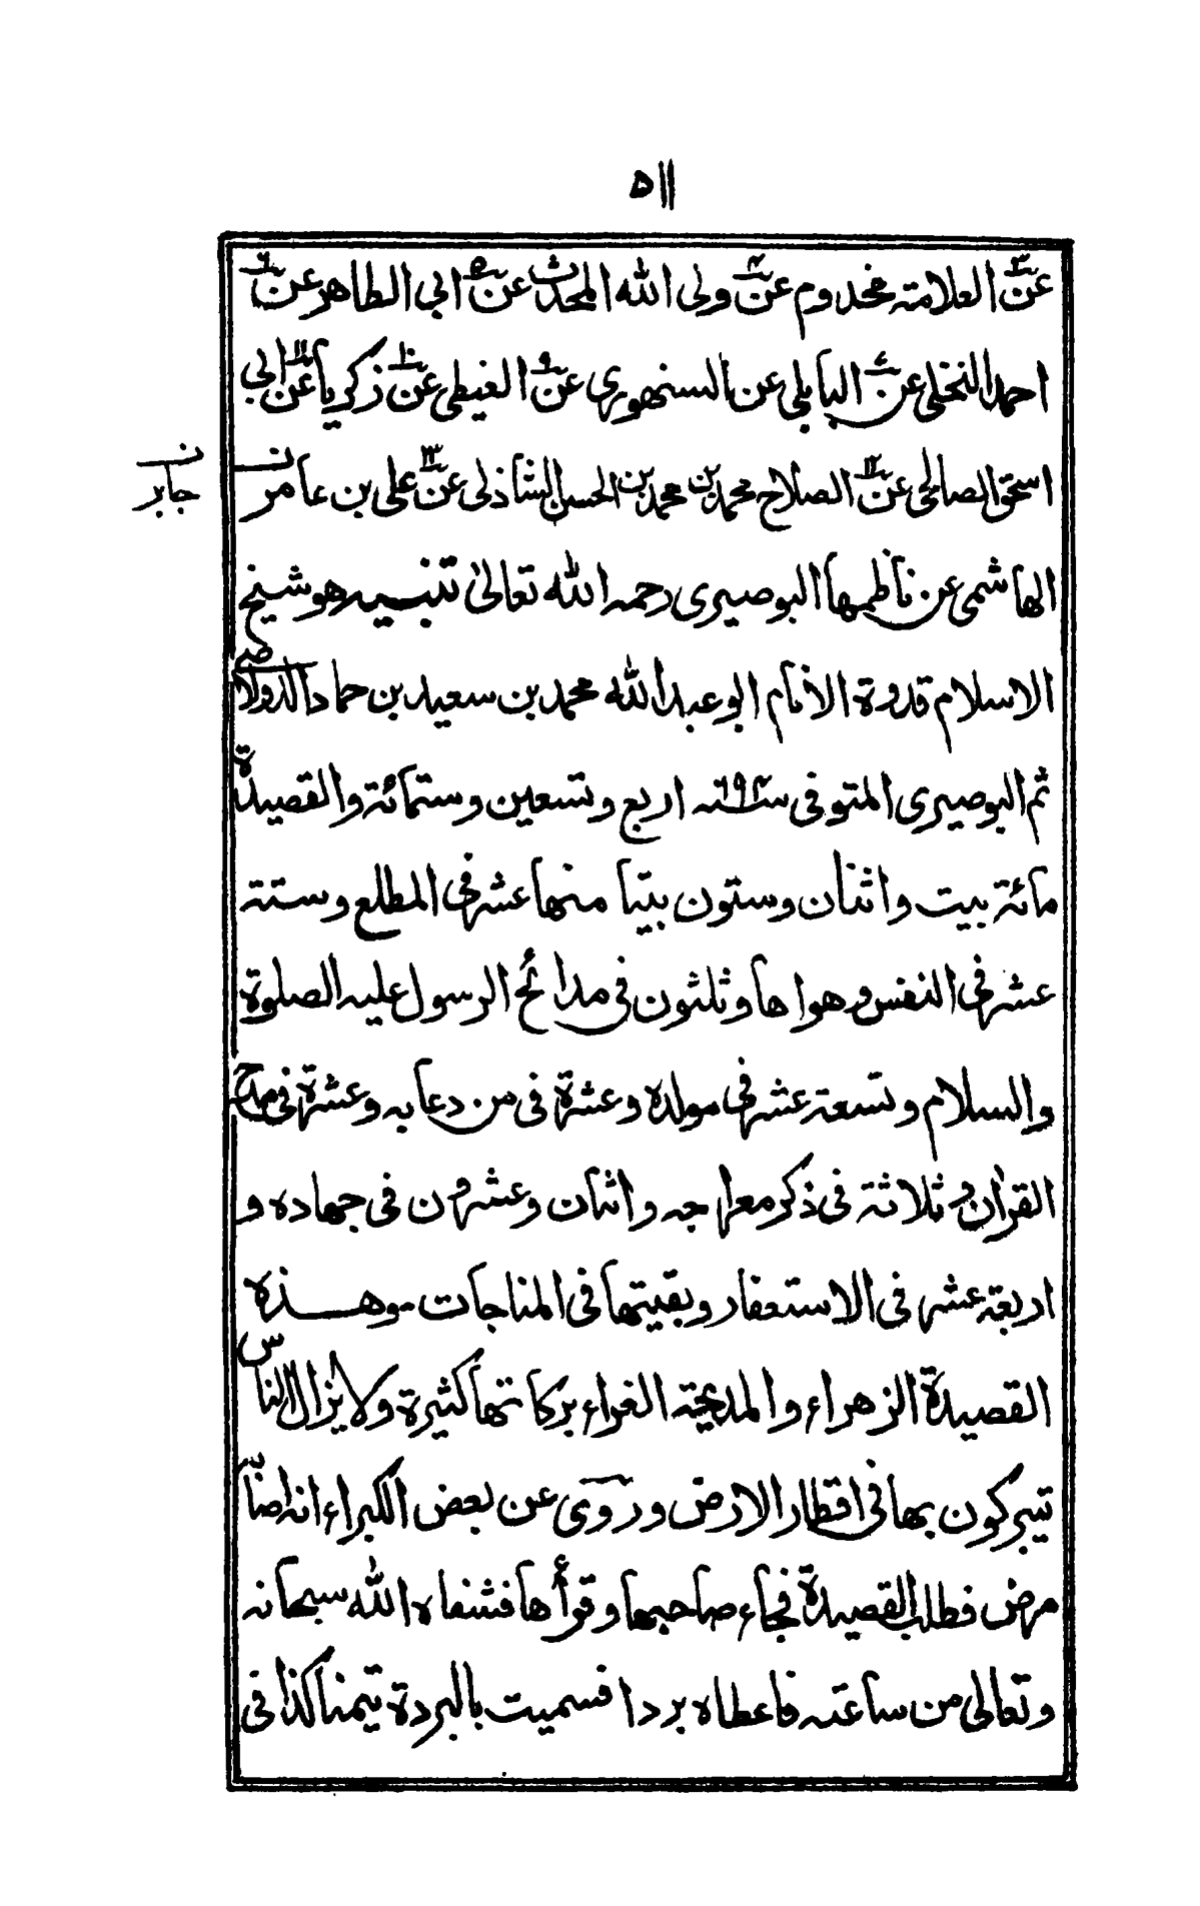 ۵۱۱
عن۳ العلامة مخدوم عن۴ ولى الله المحدث عن۵ ابى الطاهر عن۶
احمد النخلى عن۷ البابلى عن۸ السنهورى عن۹ الغيطى عن۱۰ زكريا عن۱۱ ابى
اسحق الصالحى عن۱۲ الصلاح محمد بن محمد بن الحسن الشاذلى عن۱۳ على بن عامر ن
ن جابر
الهاشمى عن ناظمها البوصيرى رحمه الله تعالىٰ تنبيه هو شيخ
الاسلام قدوة الانام ابو عبدالله محمد بن سعيد بن حماد الدولاصى
ثم البوصيرى المتوفى سنة ۶۹۴ اربع وتسعين وستمائة والقصيدة
مائة بيت واثنان وستون بيتا منها عشر فى المطلع وستة
عشر فى النفس وهواها وثلثون فى مدائح الرسول عليه الصلوة
والسلام وتسعة عشر فى مولده وعشرة فى من دعا به وعشرة فى مدح
القران وثلاثة فى ذكر معراجه واثنان وعشرون فى جهاده و
اربعة عشر فى الاستغفار وبقيتها فى المناجات ـ وهذه
القصيدة الزهراء والمديحة الغراء بركاتها كثيرة ولا يزال الناس
يتبركون بها فى اقطار الارض وروى عن بعض الكبراء انه اصابه
مرض فطلب القصيدة فجاء صاحبها وقرأها فشفاه الله سبحانه
وتعالى من ساعته فاعطاه بردا فسميت بالبردة تيمنا كذا فى